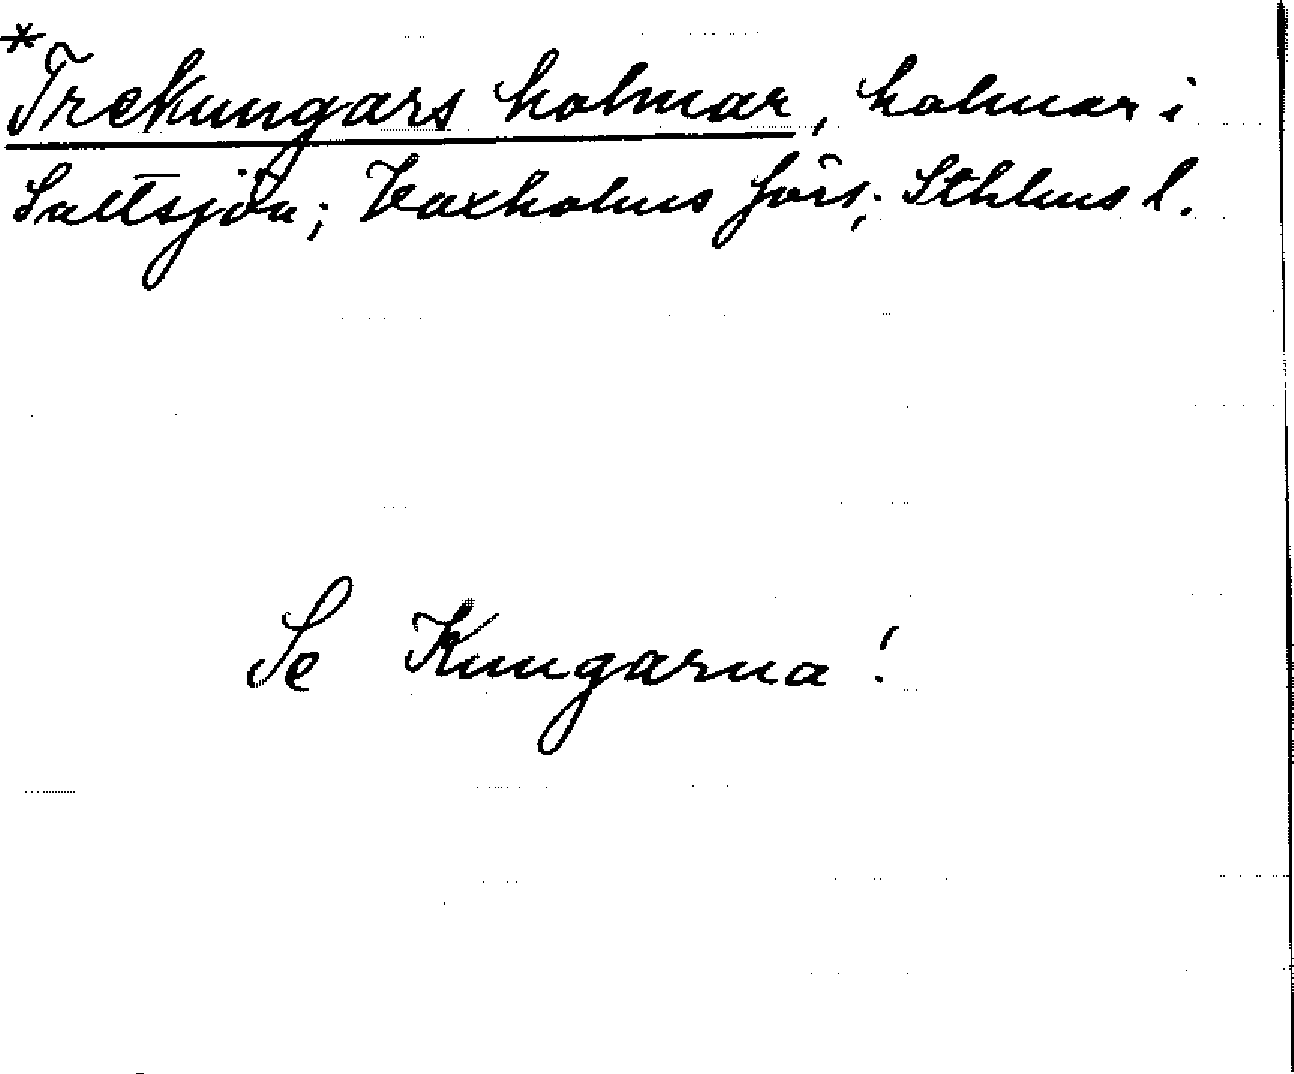 *Trekungars holmar, holmar i
Saltsjön; Vaxholms förs; Sthlms l.
Se Kungarna!